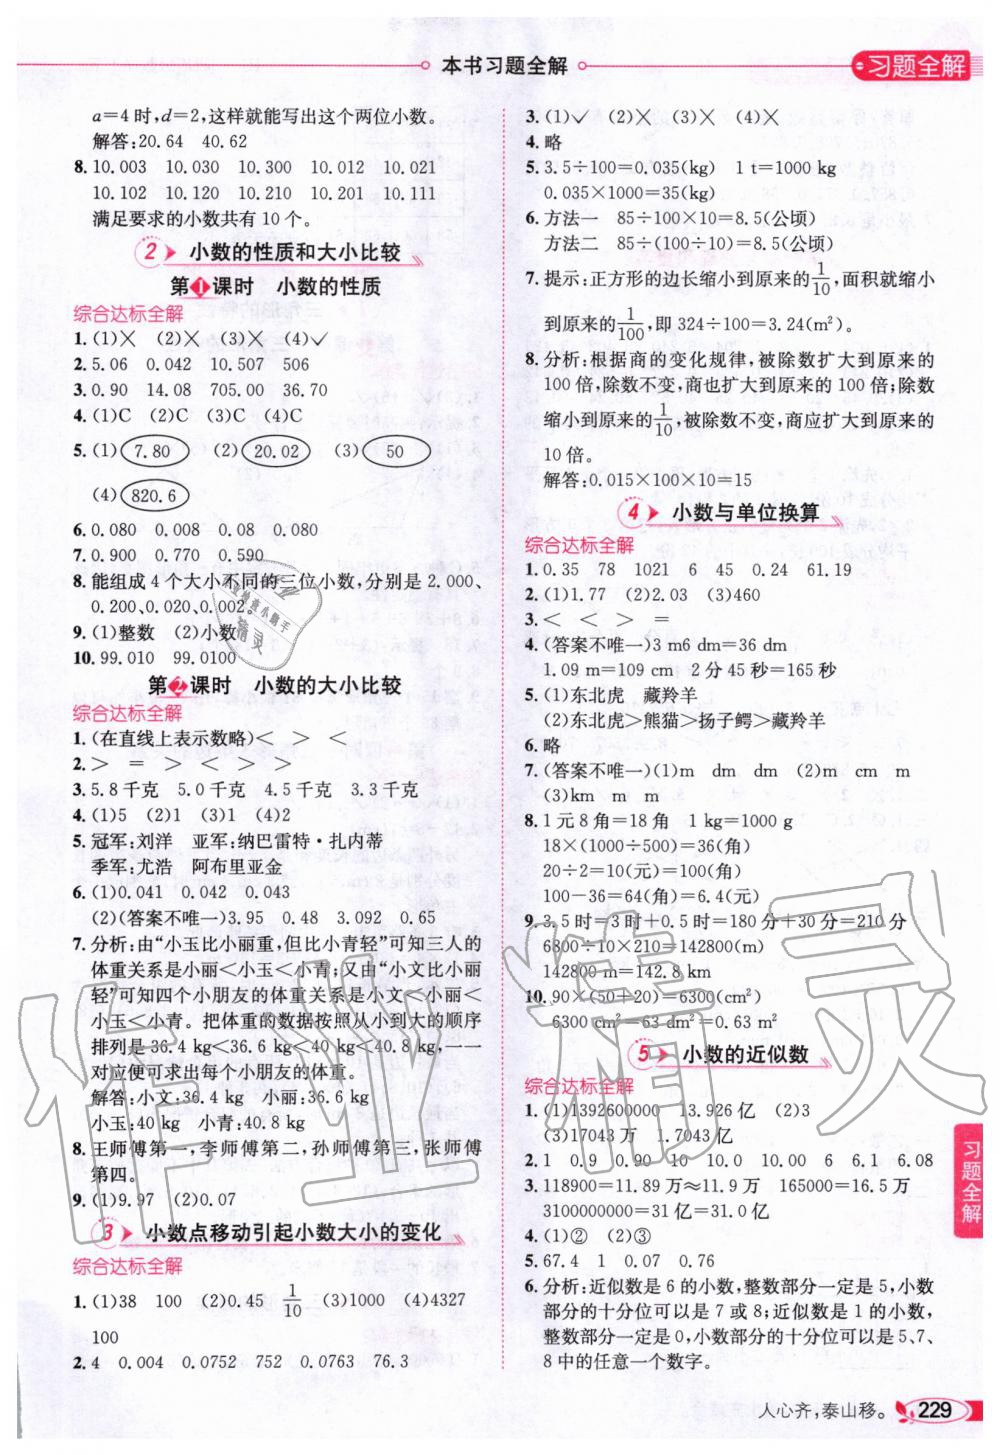 本书习题全解
习题全解
a=4时,d=2,这样就能写出这个两位小数。
解答:20.64 40.62
8. 10.003 10.030 10.300 10.012 10.021
10.102 10.120 10.210 10.201 10.111
满足要求的小数共有10个。
2 小数的性质和大小比较
第1课时 小数的性质
综合达标全解
1. (1)× (2)× (3)× (4)✓
2. 5.06 0.042 10.507 506
3. 0.90 14.08 705.00 36.70
4. (1)C (2)C (3)C (4)C
5. (1)7.80 (2)20.02 (3)50
(4)820.6
6. 0.080 0.008 0.08 0.080
7. 0.900 0.770 0.590
8. 能组成4个大小不同的三位小数,分别是2.000、
0.200、0.020、0.002。
9. (1)整数 (2)小数
10. 99.010 99.0100
第2课时 小数的大小比较
综合达标全解
1. (在直线上表示数略)< > <
2. > = > < > >
3. 5.8千克 5.0千克 4.5千克 3.3千克
4. (1)5 (2)1 (3)1 (4)2
5. 冠军:刘洋 亚军:纳巴雷特·扎内蒂
季军:尤浩 阿布里亚金
6. (1)0.041 0.042 0.043
(2)(答案不唯一)3.95 0.48 3.092 0.65
7. 分析:由“小玉比小丽重,但比小青轻”可知三人的
体重关系是小丽<小玉<小青;又由“小文比小丽
轻”可知四个小朋友的体重关系是小文<小丽<
小玉<小青。把体重的数据按照从小到大的顺序
排列是36.4 kg<36.6 kg<40 kg<40.8 kg,一一
对应便可求出每个小朋友的体重。
解答:小文:36.4 kg 小丽:36.6 kg
小玉:40 kg 小青:40.8 kg
8. 王师傅第一,李师傅第二,孙师傅第三,张师傅
第四。
9. (1)9.97 (2)0.07
3 小数点移动引起小数大小的变化
综合达标全解
1. (1)38 100 (2)0.45 1/10 (3)1000 (4)4327
100
2. 4 0.004 0.0752 752 0.0763 76.3
3. (1)✓ (2)× (3)× (4)×
4. 略
5. 3.5÷100=0.035(kg) 1 t=1000 kg
0.035×1000=35(kg)
6. 方法一 85÷100×10=8.5(公顷)
方法二 85÷(100÷10)=8.5(公顷)
7. 提示:正方形的边长缩小到原来的1/10,面积就缩小
到原来的1/100,即324÷100=3.24(m²)。
8. 分析:根据商的变化规律,被除数扩大到原来的
100倍,除数不变,商也扩大到原来的100倍;除数
缩小到原来的1/10,被除数不变,商应扩大到原来的
10倍。
解答:0.015×100×10=15
4 小数与单位换算
综合达标全解
1. 0.35 78 1021 6 45 0.24 61.19
2. (1)1.77 (2)2.03 (3)460
3. < < > =
4. (答案不唯一)3 m6 dm=36 dm
1.09 m=109 cm 2分45秒=165秒
5. (1)东北虎 藏羚羊
(2)东北虎>熊猫>扬子鳄>藏羚羊
6. 略
7. (答案不唯一)(1)m dm dm (2)m cm m
(3)km m m
8. 1元8角=18角 1 kg=1000 g
18×(1000÷500)=36(角)
20÷2=10(元)=100(角)
100-36=64(角)=6.4(元)
9. 3.5时=3时+0.5时=180分+30分=210分
6800÷10×210=142800(m)
142800 m=142.8 km
10. 90×(50+20)=6300(cm²)
6300 cm²=63 dm²=0.63 m²
5 小数的近似数
综合达标全解
1. (1)1392600000 13.926亿 (2)3
(3)17043万 1.7043亿
2. 1 0.9 0.90 10 10.0 10.00 6 6.1 6.08
3. 118900=11.89万≈11.9万 165000=16.5万
3100000000=31亿=31.0亿
4. (1)② (2)③
5. 67.4 1 0.07 0.76
6. 分析:近似数是6的小数,整数部分一定是5,小数
部分的十分位可以是7或8;近似数是1的小数,
整数部分一定是0,小数部分的十分位可以是5、7、
8中的任意一个数字。
习题全解
人心齐,泰山移。 229
作业精灵
精灵